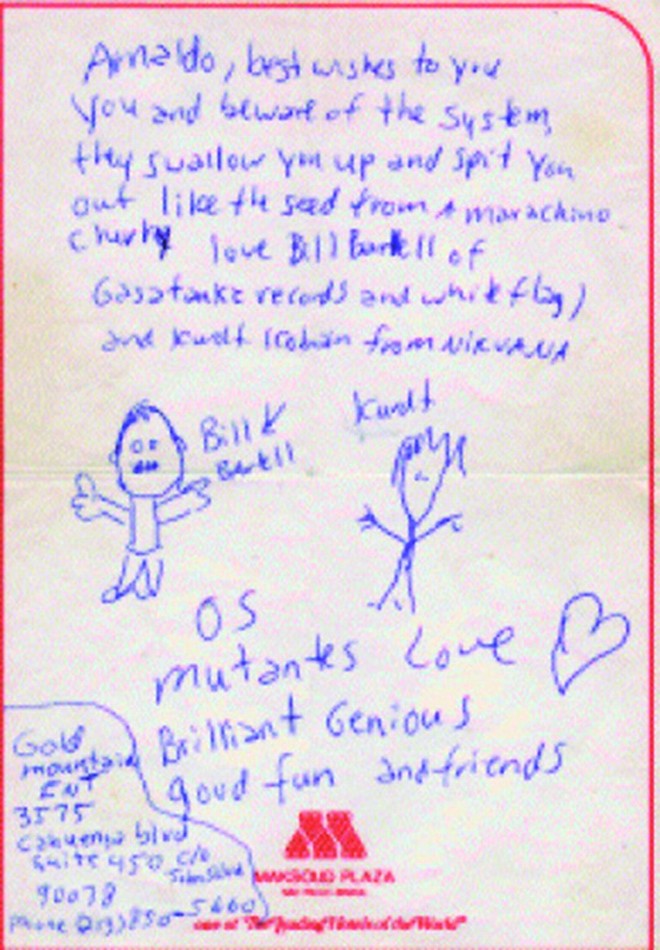 Arnaldo, best wishes to you
You and beware of the system,
they swallow you up and spit you
out like the seed from a marachino
cherry love Bill Bartell of
Gasatanka records and white flag)
and Kurdt Kobain from NIRVANA
Bill
Bartell
Kurdt
OS
mutantes Love
Brilliant Genious
good fun and friends
Gold
mountain
ENT
3575
Cahuenga blvd
Suite 450 c/o
90078
Phone (213) 850-5660
MAKSOUD PLAZA
SÃO PAULO BRASIL
one of "The Leading Hotels of the World"